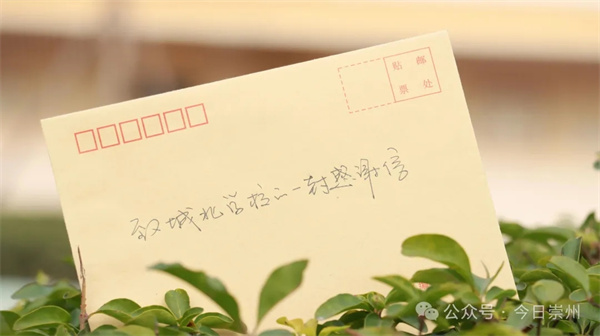 贴 邮
票 处
致城北学校的一封感谢信
公众号：今日崇州